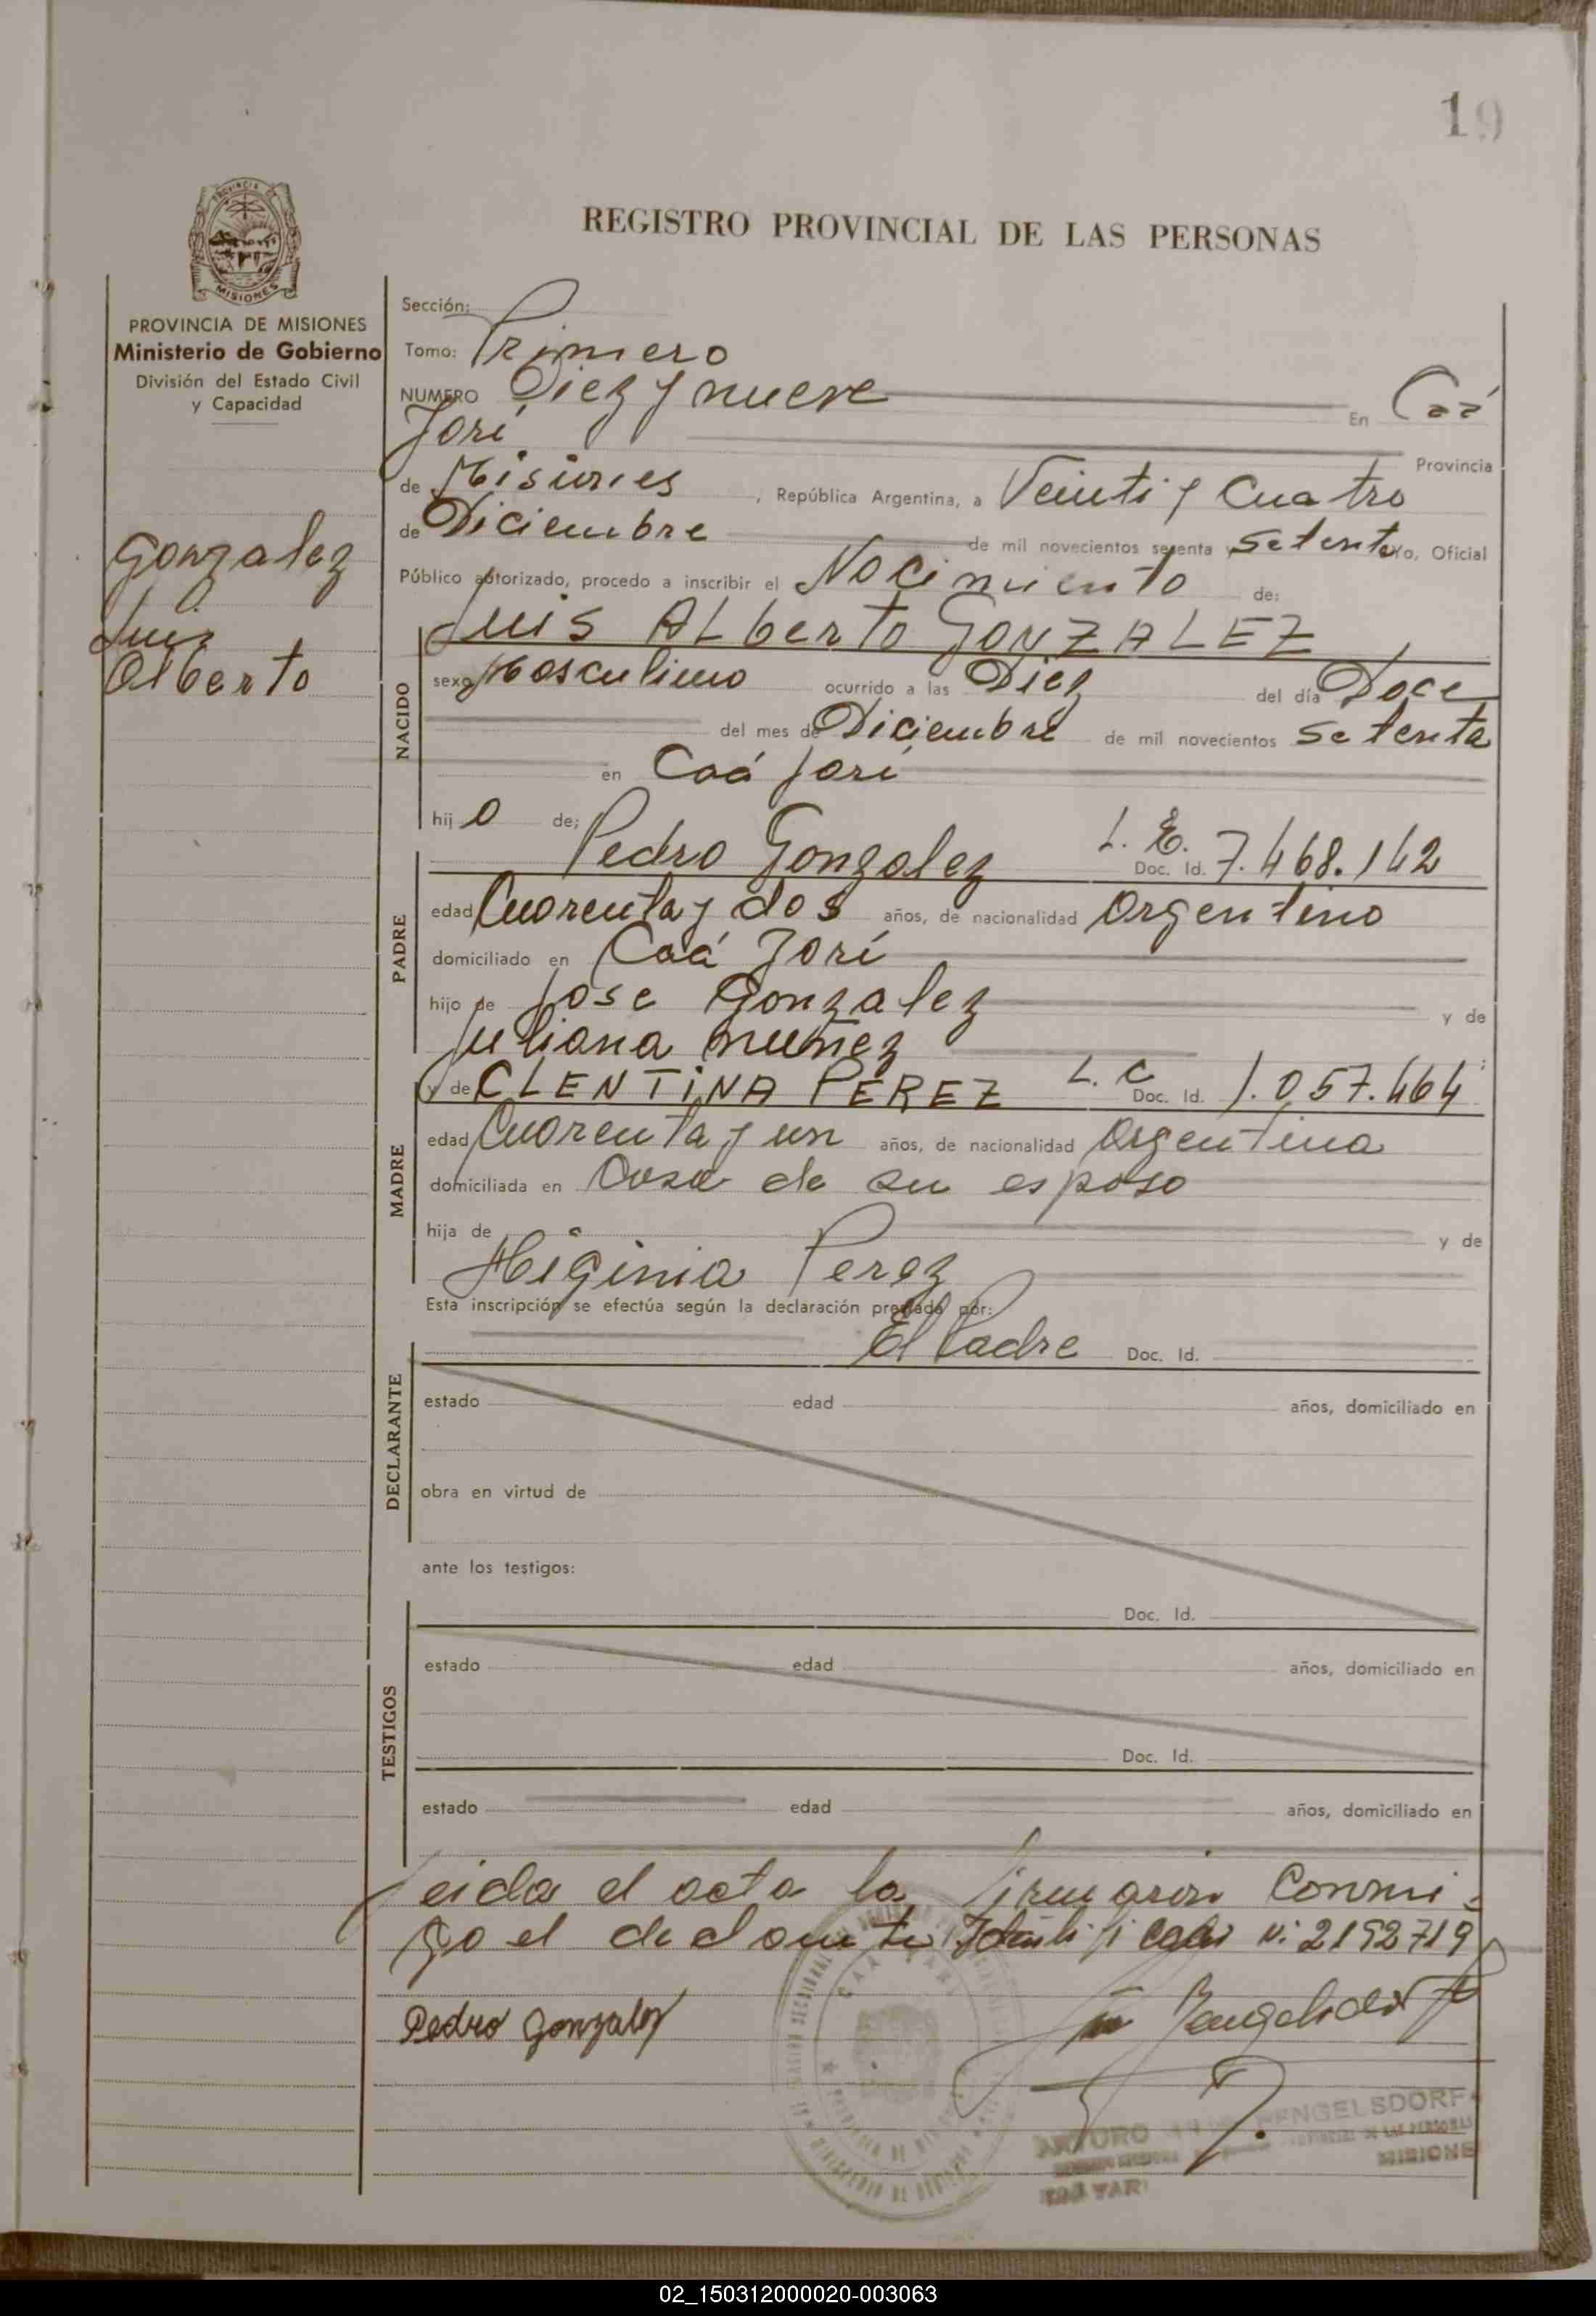 19
PROVINCIA DE MISIONES
REGISTRO PROVINCIAL DE LAS PERSONAS
PROVINCIA DE MISIONES
Ministerio de Gobierno
División del Estado Civil
y Capacidad
Gonzalez
Luis
Alberto
Sección:
Tomo: Primero
NUMERO Diez y nueve En Caá
Yarí Provincia
de Misiones, República Argentina, a Veinti y Cuatro
de Diciembre de mil novecientos sesenta y Setenta yo, Oficial
Público autorizado, procedo a inscribir el Nacimiento de:
Luis ALberto GONZALEZ
NACIDO
sexo Masculino ocurrido a las Diez del día Doce
del mes de Diciembre de mil novecientos Setenta
en Caá Yarí
hijo de:
PADRE
Pedro Gonzalez L. E. Doc. Id. 7.468.142
edad Cuarenta y dos años, de nacionalidad Argentino
domiciliado en Caá Yarí
hijo de Jose Gonzalez y de
Juliana Nuñez
MADRE
y de CLENTINA PEREZ L. C Doc. Id. 1.057.464
edad Cuarenta y un años, de nacionalidad Argentina
domiciliada en Casa de su esposo
hija de y de
Higinia Perez
Esta inscripción se efectúa según la declaración prestada por:
El Padre Doc. Id.
DECLARANTE
estado edad años, domiciliado en
obra en virtud de
ante los testigos:
Doc. Id.
TESTIGOS
estado edad años, domiciliado en
Doc. Id.
estado edad años, domiciliado en
Leida el acta la firmaron Conmi-
go el declarante Identificado N: 2192719
Pedro Gonzalez
ARTURO ENGELSDORF
MISIONES
CAA YARI
02_150312000020-003063